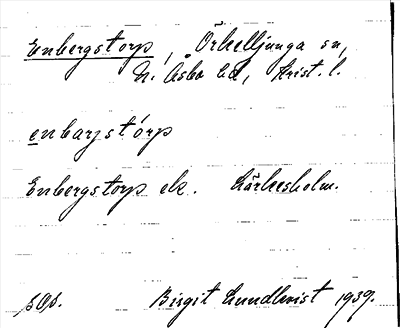 Enbergstorp, Örkelljunga sn,
N. Åsbo hd, Krist. l.
enbarjstórp
Enbergstorp ek. Lärkesholm.
Birgit Lundkvist 1939.